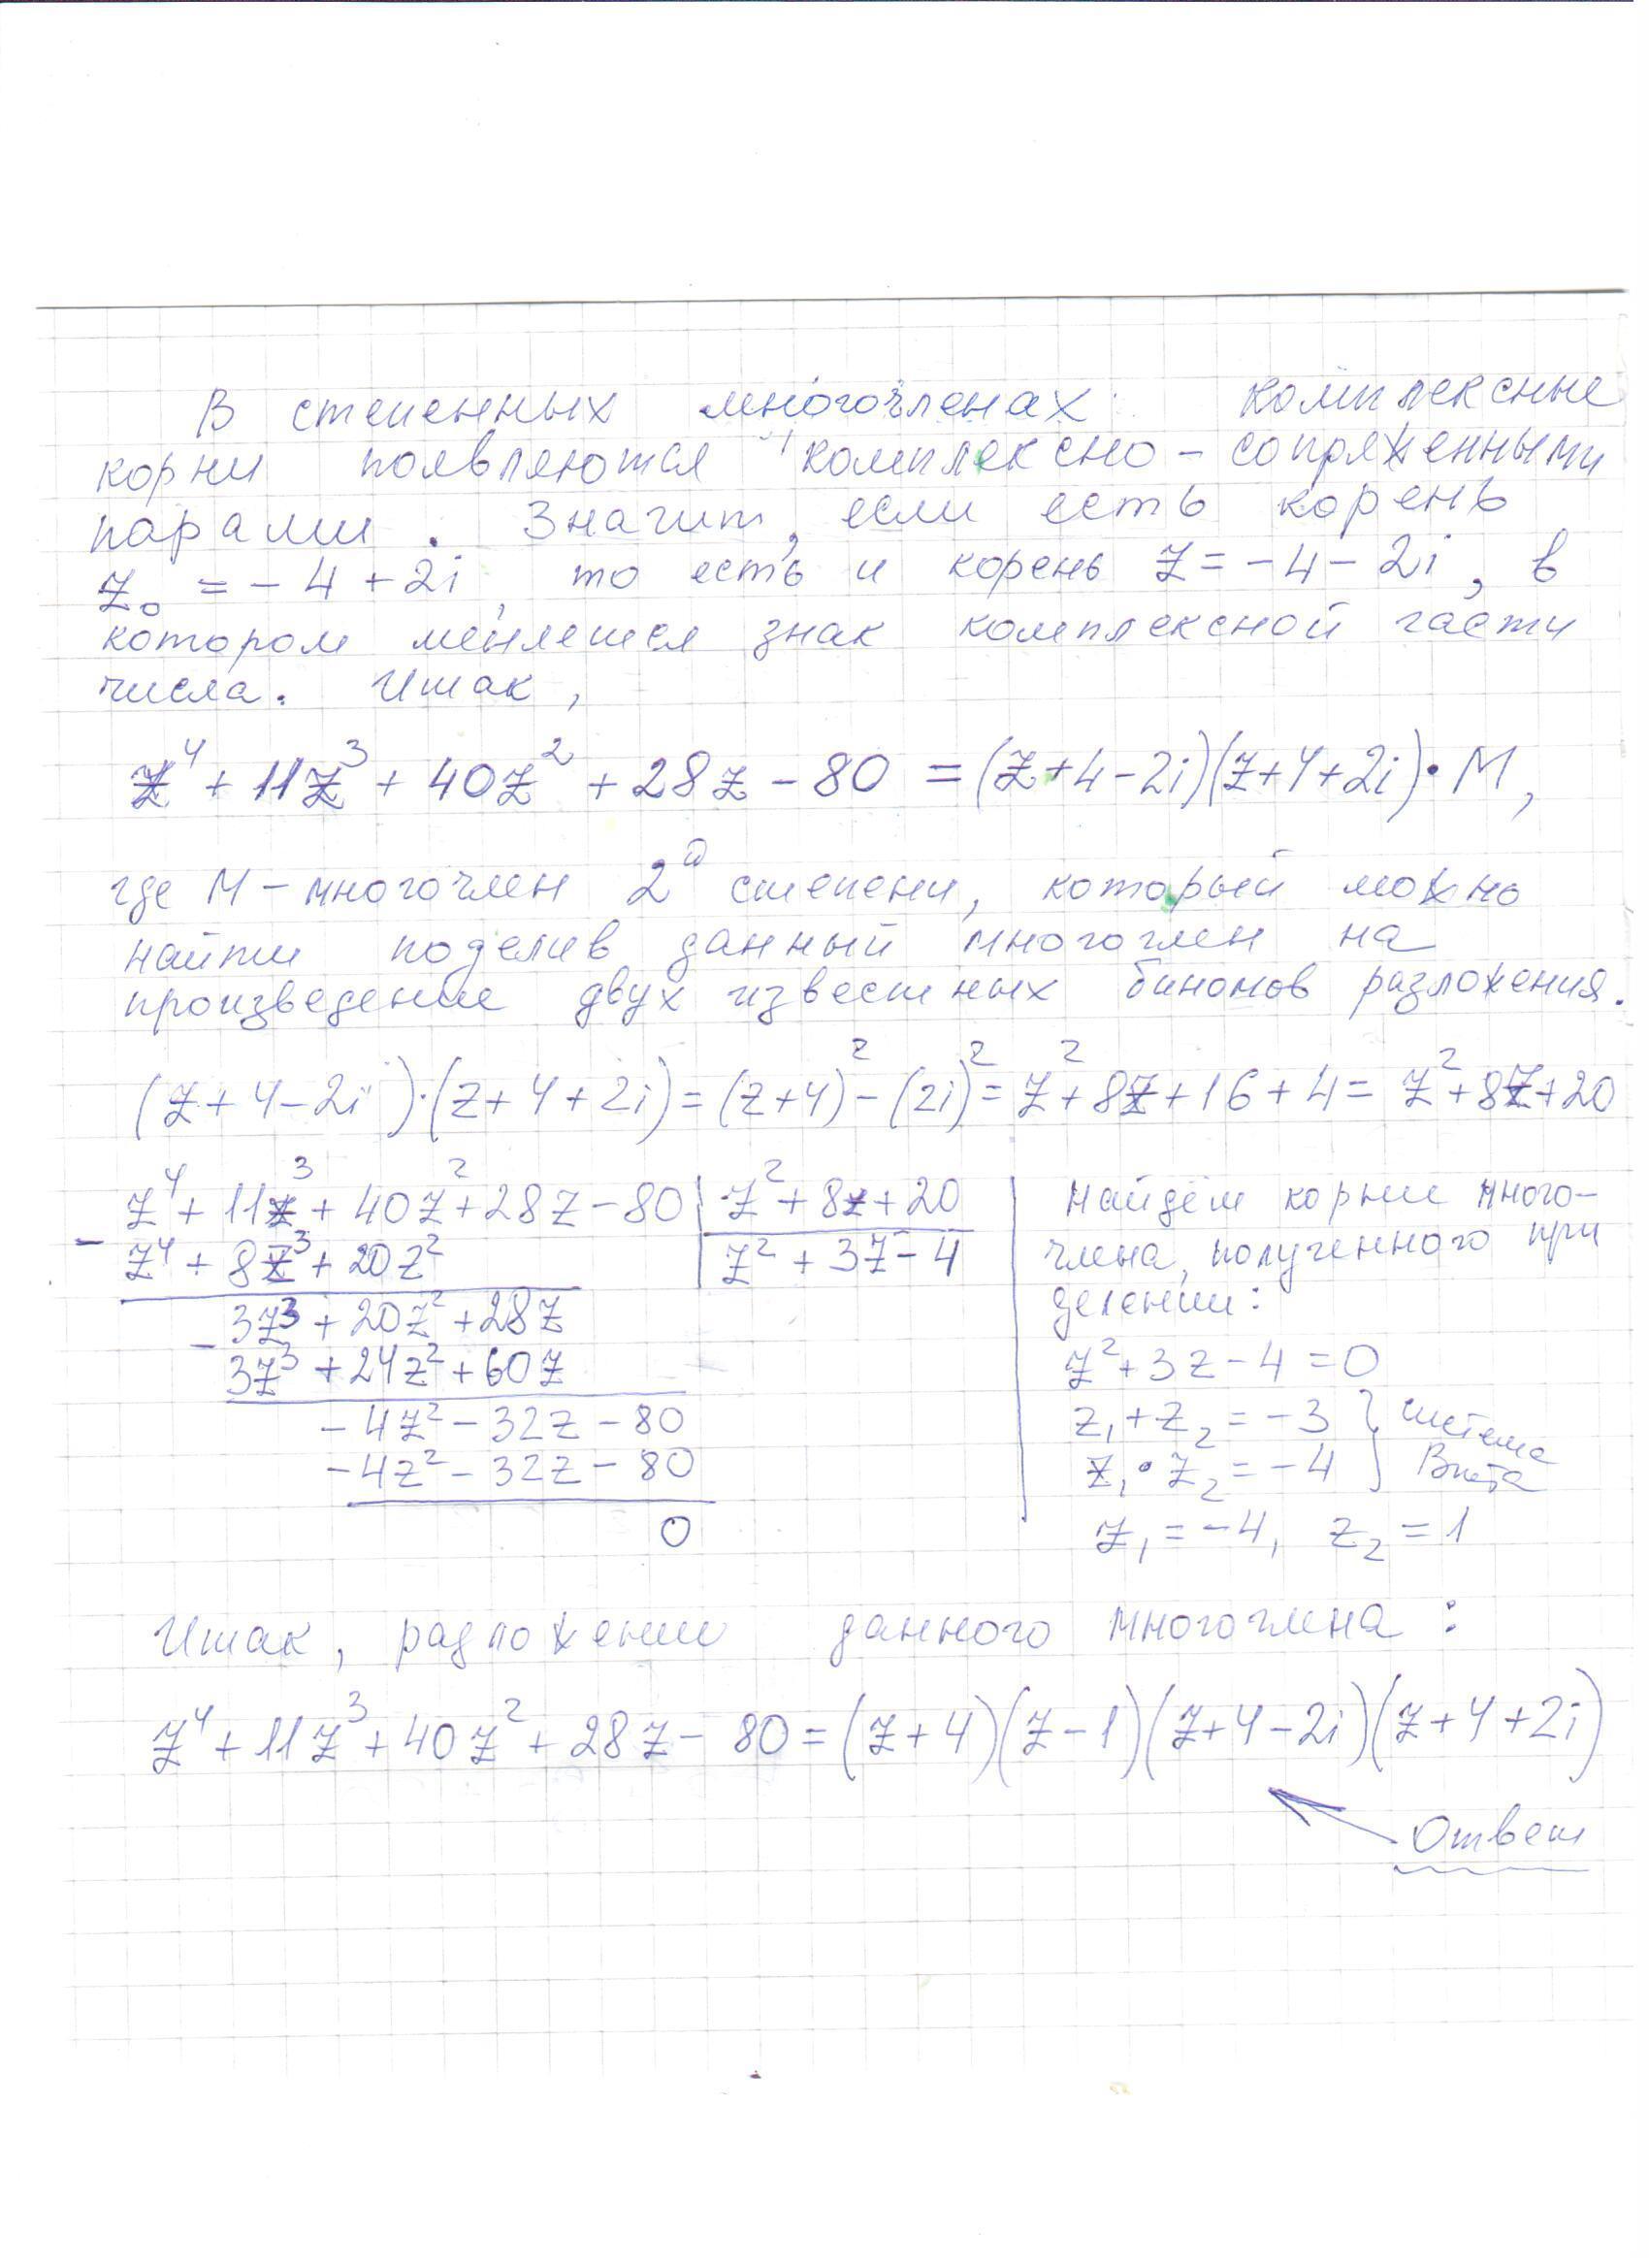 В степенных многочленах комплексные
корни появляются комплексно-сопряженными
парами. Значит, если есть корень
z₀ = -4+2i, то есть и корень z = -4-2i, в
котором меняется знак комплексной части
числа. Итак,
z⁴ + 11z³ + 40z² + 28z - 80 = (z+4-2i)(z+4+2i)·M,
где M - многочлен 2й степени, который можно
найти поделив данный многочлен на
произведение двух известных биномов разложения.
(z+4-2i)·(z+4+2i) = (z+4)² - (2i)² = z²+8z+16+4 = z²+8z+20
z⁴ + 11z³ + 40z² + 28z - 80 | z² + 8z + 20
- z⁴ + 8z³ + 20z² | z² + 3z - 4
3z³ + 20z² + 28z
- 3z³ + 24z² + 60z
-4z² - 32z - 80
-4z² - 32z - 80
0
Найдём корни много-
члена, полученного при
делении:
z² + 3z - 4 = 0
z₁ + z₂ = -3 } система
z₁ · z₂ = -4 } Виета
z₁ = -4, z₂ = 1
Итак, разложении данного многочлена:
z⁴ + 11z³ + 40z² + 28z - 80 = (z+4)(z-1)(z+4-2i)(z+4+2i)
Ответ